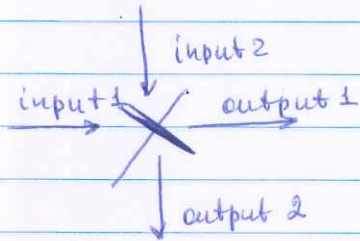 input 2
input 1 output 1
output 2